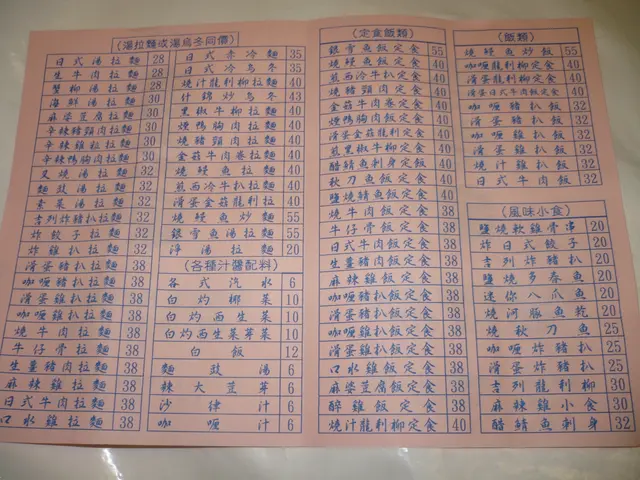 (湯拉麵或湯烏冬同價)
日式湯拉麵 28
生牛肉拉麵 28
蟹柳湯拉麵 28
海鮮湯拉麵 30
麻婆豆腐拉麵 30
辛辣豬頸肉拉麵 30
辛辣雞粒拉麵 30
辛辣鴨胸肉拉麵 30
叉燒湯拉麵 32
麵豉湯拉麵 32
素菜湯拉麵 32
吉列炸豬扒拉麵 32
炸餃子拉麵 32
炸雞扒拉麵 32
滑蛋豬扒拉麵 38
咖喱豬扒拉麵 38
滑蛋雞扒拉麵 38
咖喱雞扒拉麵 38
燒牛肉拉麵 38
牛仔骨拉麵 38
生薑豬肉拉麵 38
麻辣雞拉麵 38
日式牛肉拉麵 38
口水雞拉麵 38
日式赤冷麵 35
日式冷烏冬 35
燒汁龍利柳拉麵 40
什錦炒烏冬 43
黑椒牛柳拉麵 40
燻鴨胸肉拉麵 40
燒豬頸肉拉麵 40
金菇牛肉卷拉麵 40
燒鰻魚拉麵 40
煎西冷牛扒拉麵 40
滑蛋金菇龍利拉 40
燒鰻魚炒麵 55
銀雪魚湯拉麵 55
淨湯拉麵 20
(各種汁醬配料)
各式汽水 6
白灼椰菜 10
白灼西生菜 10
白灼西生菜芽菜 10
白飯 12
麵豉湯 6
辣大豆芽 6
沙律汁 6
咖喱汁 6
(定食飯類)
銀雪魚飯定食 55
燒鰻魚飯定食 40
煎西冷牛扒定食 40
燒豬頸肉定食 40
金菇牛肉卷定食 40
燻鴨胸肉飯定食 40
滑蛋金菇龍利定食 40
煎黑椒牛柳定食 40
醋鯖魚刺身定飯 40
秋刀魚飯定食 40
鹽燒鯖魚飯定食 40
燒牛肉飯定食 38
牛仔骨飯定食 38
日式牛肉飯定食 38
生薑豬肉飯定食 38
麻辣雞飯定食 38
咖喱豬扒飯定食 38
滑蛋豬扒飯定食 38
咖喱雞扒飯定食 38
滑蛋雞扒飯定食 38
口水雞飯定食 38
麻婆豆腐飯定食 38
醉雞飯定食 38
燒汁龍利柳定食 40
(飯類)
燒鰻魚炒飯 55
咖喱龍利柳定食 40
滑蛋龍利柳定食 40
滑蛋日式牛肉飯定食 40
咖喱豬扒飯 32
滑蛋豬扒飯 32
咖喱雞扒飯 32
滑蛋雞扒飯 32
燒汁雞扒飯 32
日式牛肉飯 32
(風味小食)
鹽燒軟雞骨串 20
炸日式餃子 20
吉列炸豬扒 20
鹽燒多春魚 20
迷你八爪魚 20
燒河豚魚乾 20
燒秋刀魚 25
咖喱炸豬扒 25
滑蛋炸豬扒 25
吉列龍利柳 30
麻辣雞小食 30
醋鯖魚刺身 32